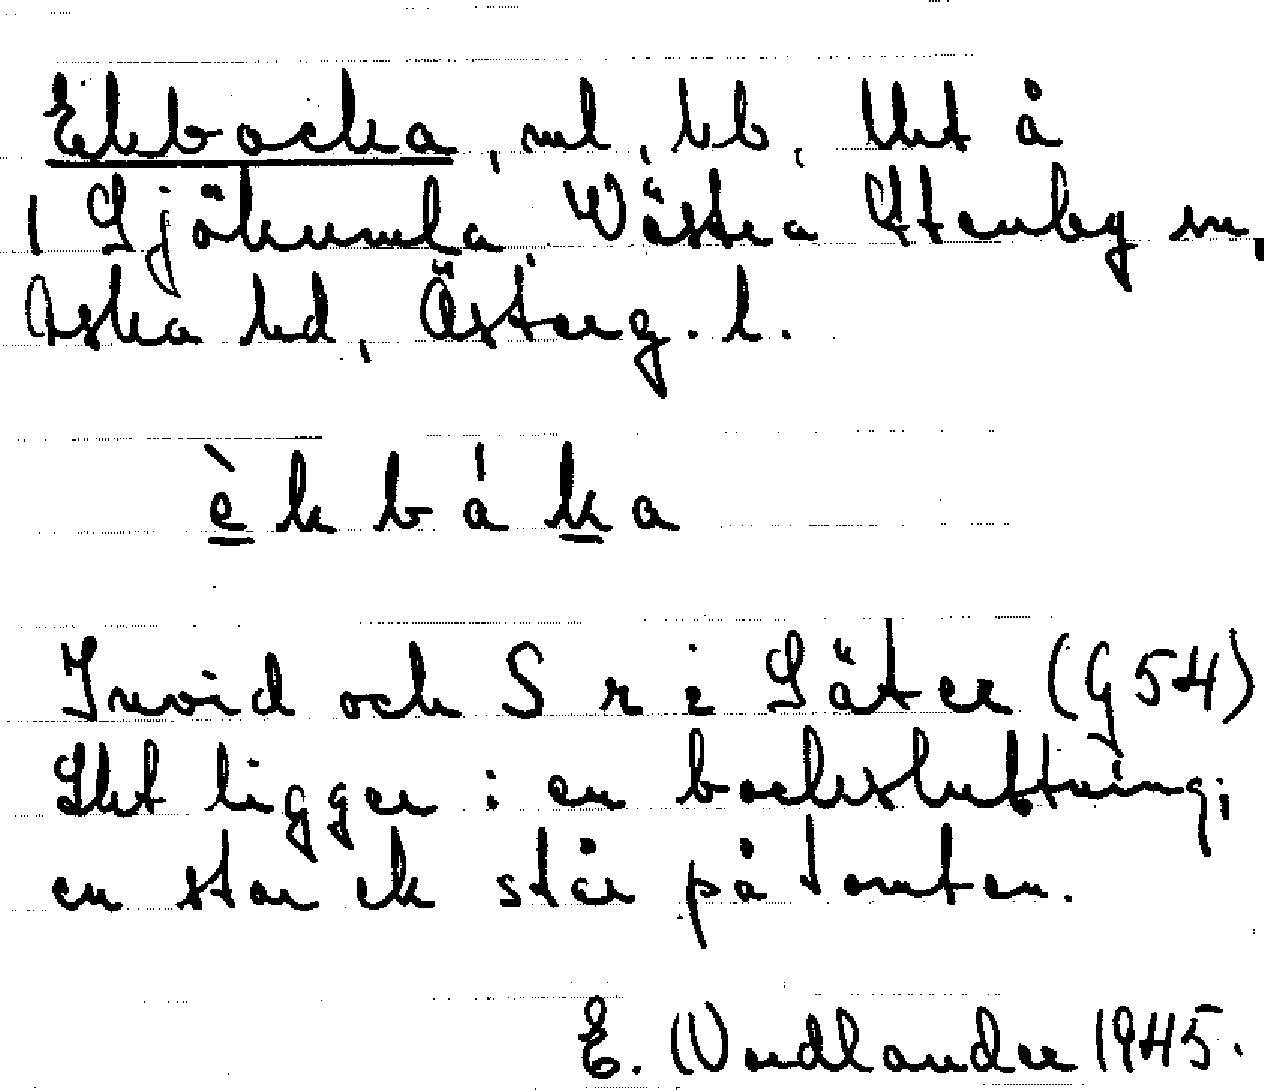 Ekbacka, ml, hb, Uet å
1 Sjökumla Västra Stenby sn,
Aska hd, Österg. l.
èkbáka
Invid och S r i Säter (G 54)
Det ligger i en backsluttning;
en stor ek står på tomten.
E. Nordlander 1945.